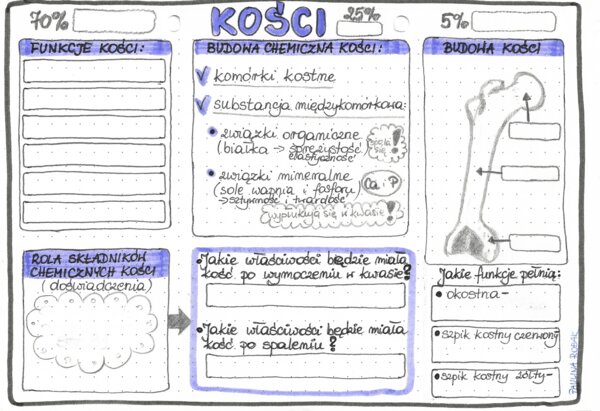 70%
KOŚCI
25%
5%
FUNKCJE KOŚCI:
BUDOWA CHEMICZNA KOŚCI:
komórki kostne
substancja międzykomórkowa:
związki organiczne
(białka → sprężystość
elastyczność
spala
się !
związki mineralne
(sole wapnia i fosforu)
→ sztywność i twardość
Ca i P
wypłukują się w kwasie !
BUDOWA KOŚCI
ROLA SKŁADNIKÓW
CHEMICZNYCH KOŚCI
(doświadczenia)
Jakie właściwości będzie miała
kość po wymoczeniu w kwasie?
Jakie właściwości będzie miała
kość po spaleniu?
Jakie funkcje pełnią:
okostna-
szpik kostny czerwony-
szpik kostny żółty-